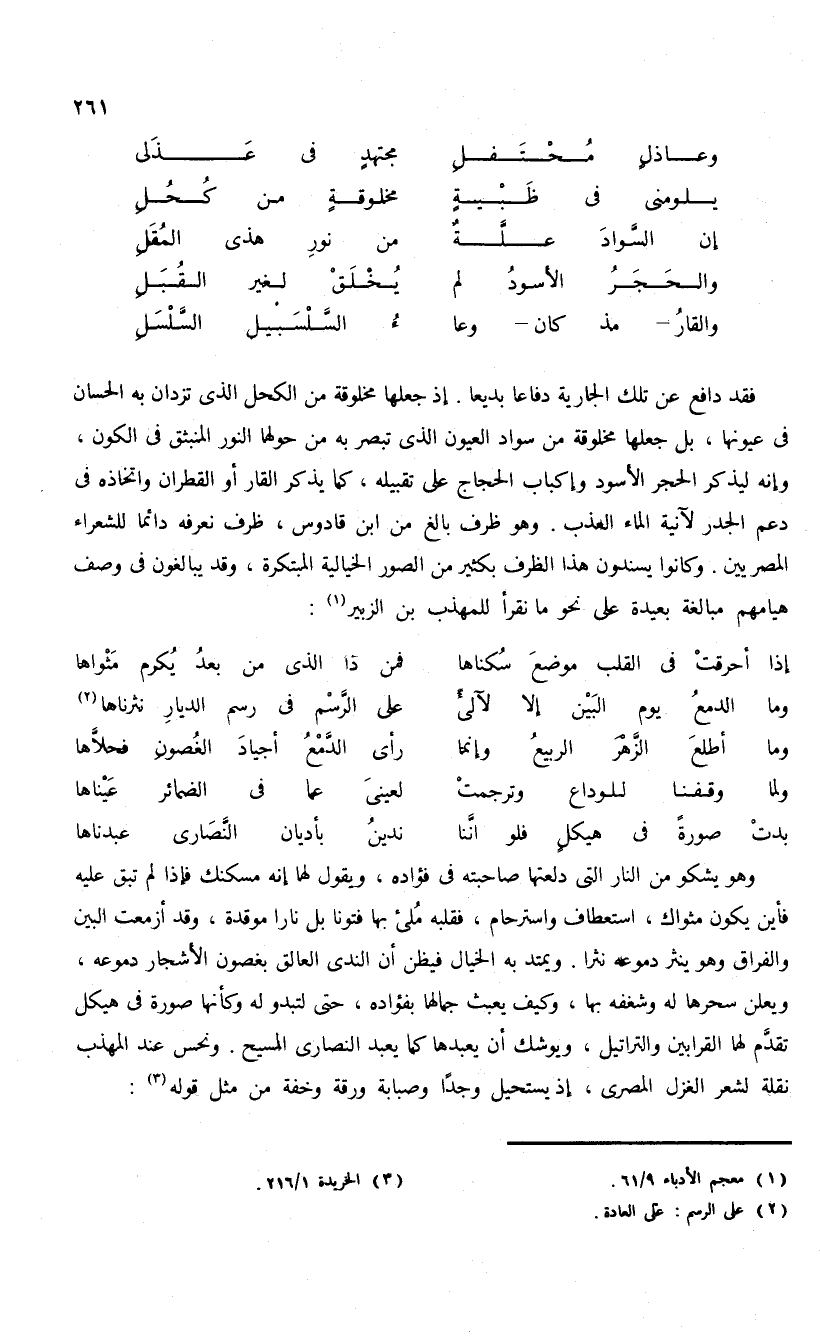 ٢٦١
وعاذلٍ مُحْتَفلِ مجتهدٍ فى عَذَلى
يلومنى فى ظَبْيةٍ مخلوقةٍ من كُحُلِ
إن السَّوادَ علَّةٌ من نورِ هذى المُقَلِ
والحَجَرُ الأسودُ لم يُخْلَقْ لغير القُبَلِ
والقارُ – مذ كان – وعا ءُ السَّلْسَبيل السَّلْسَلِ
فقد دافع عن تلك الجارية دفاعا بديعا . إذ جعلها مخلوقة من الكحل الذى تزدان به الحسان
فى عيونها ، بل جعلها مخلوقة من سواد العيون الذى تبصر به من حولها النور المنبثق فى الكون ،
وإنه ليذكر الحجر الأسود وإكباب الحجاج على تقبيله ، كما يذكر القار أو القطران واتخاذه فى
دعم الجدر لآنية الماء العذب . وهو ظرف بالغ من ابن قادوس ، ظرف نعرفه دائما للشعراء
المصريين . وكانوا يسندون هذا الظرف بكثير من الصور الخيالية المبتكرة ، وقد يبالغون فى وصف
هيامهم مبالغة بعيدة على نحو ما نقرأ للمهذب بن الزبير(١) :
إذا أحرقتْ فى القلب موضعَ سُكناها فمن ذَا الذى من بعدُ يُكرم مَثْواها
وما الدمعُ يوم البَيْن إلا لآلئٌ على الرَّسْم فى رسم الديارِ نثرناها(٢)
وما أطلعَ الزَّهْرَ الربيعُ وإنما رأى الدَّمْعُ أجيادَ الغُصونِ فحلاَّها
ولما وقفنا للوداع وترجمتْ لعينىَ عما فى الضمائر عَيْناها
بدتْ صورةً فى هيكلٍ فلو انَّنا ندينُ بأديان النَّصَارى عبدناها
وهو يشكو من النار التى دلعتها صاحبته فى فؤاده ، ويقول لها إنه مسكنك فإذا لم تبق عليه
فأين يكون مثواك ، استعطاف واسترحام ، فقلبه مُلئ بها فتونا بل نارا موقدة ، وقد أزمعت البين
والفراق وهو ينثر دموعه نثرا . ويمتد به الخيال فيظن أن الندى العالق بغصون الأشجار دموعه ،
ويعلن سحرها له وشغفه بها ، وكيف يعبث جمالها بفؤاده ، حتى لتبدو له وكأنها صورة فى هيكل
تقدَّم لها القرابين والتراتيل ، ويوشك أن يعبدها كما يعبد النصارى المسيح . ونحس عند المهذب
نقلة لشعر الغزل المصرى ، إذ يستحيل وجدًا وصبابة ورقة وخفة من مثل قوله(٣) :
(١) معجم الأدباء ٦١/٩. (٣) الخريدة ٢١٦/١.
(٢) على الرسم : على العادة .